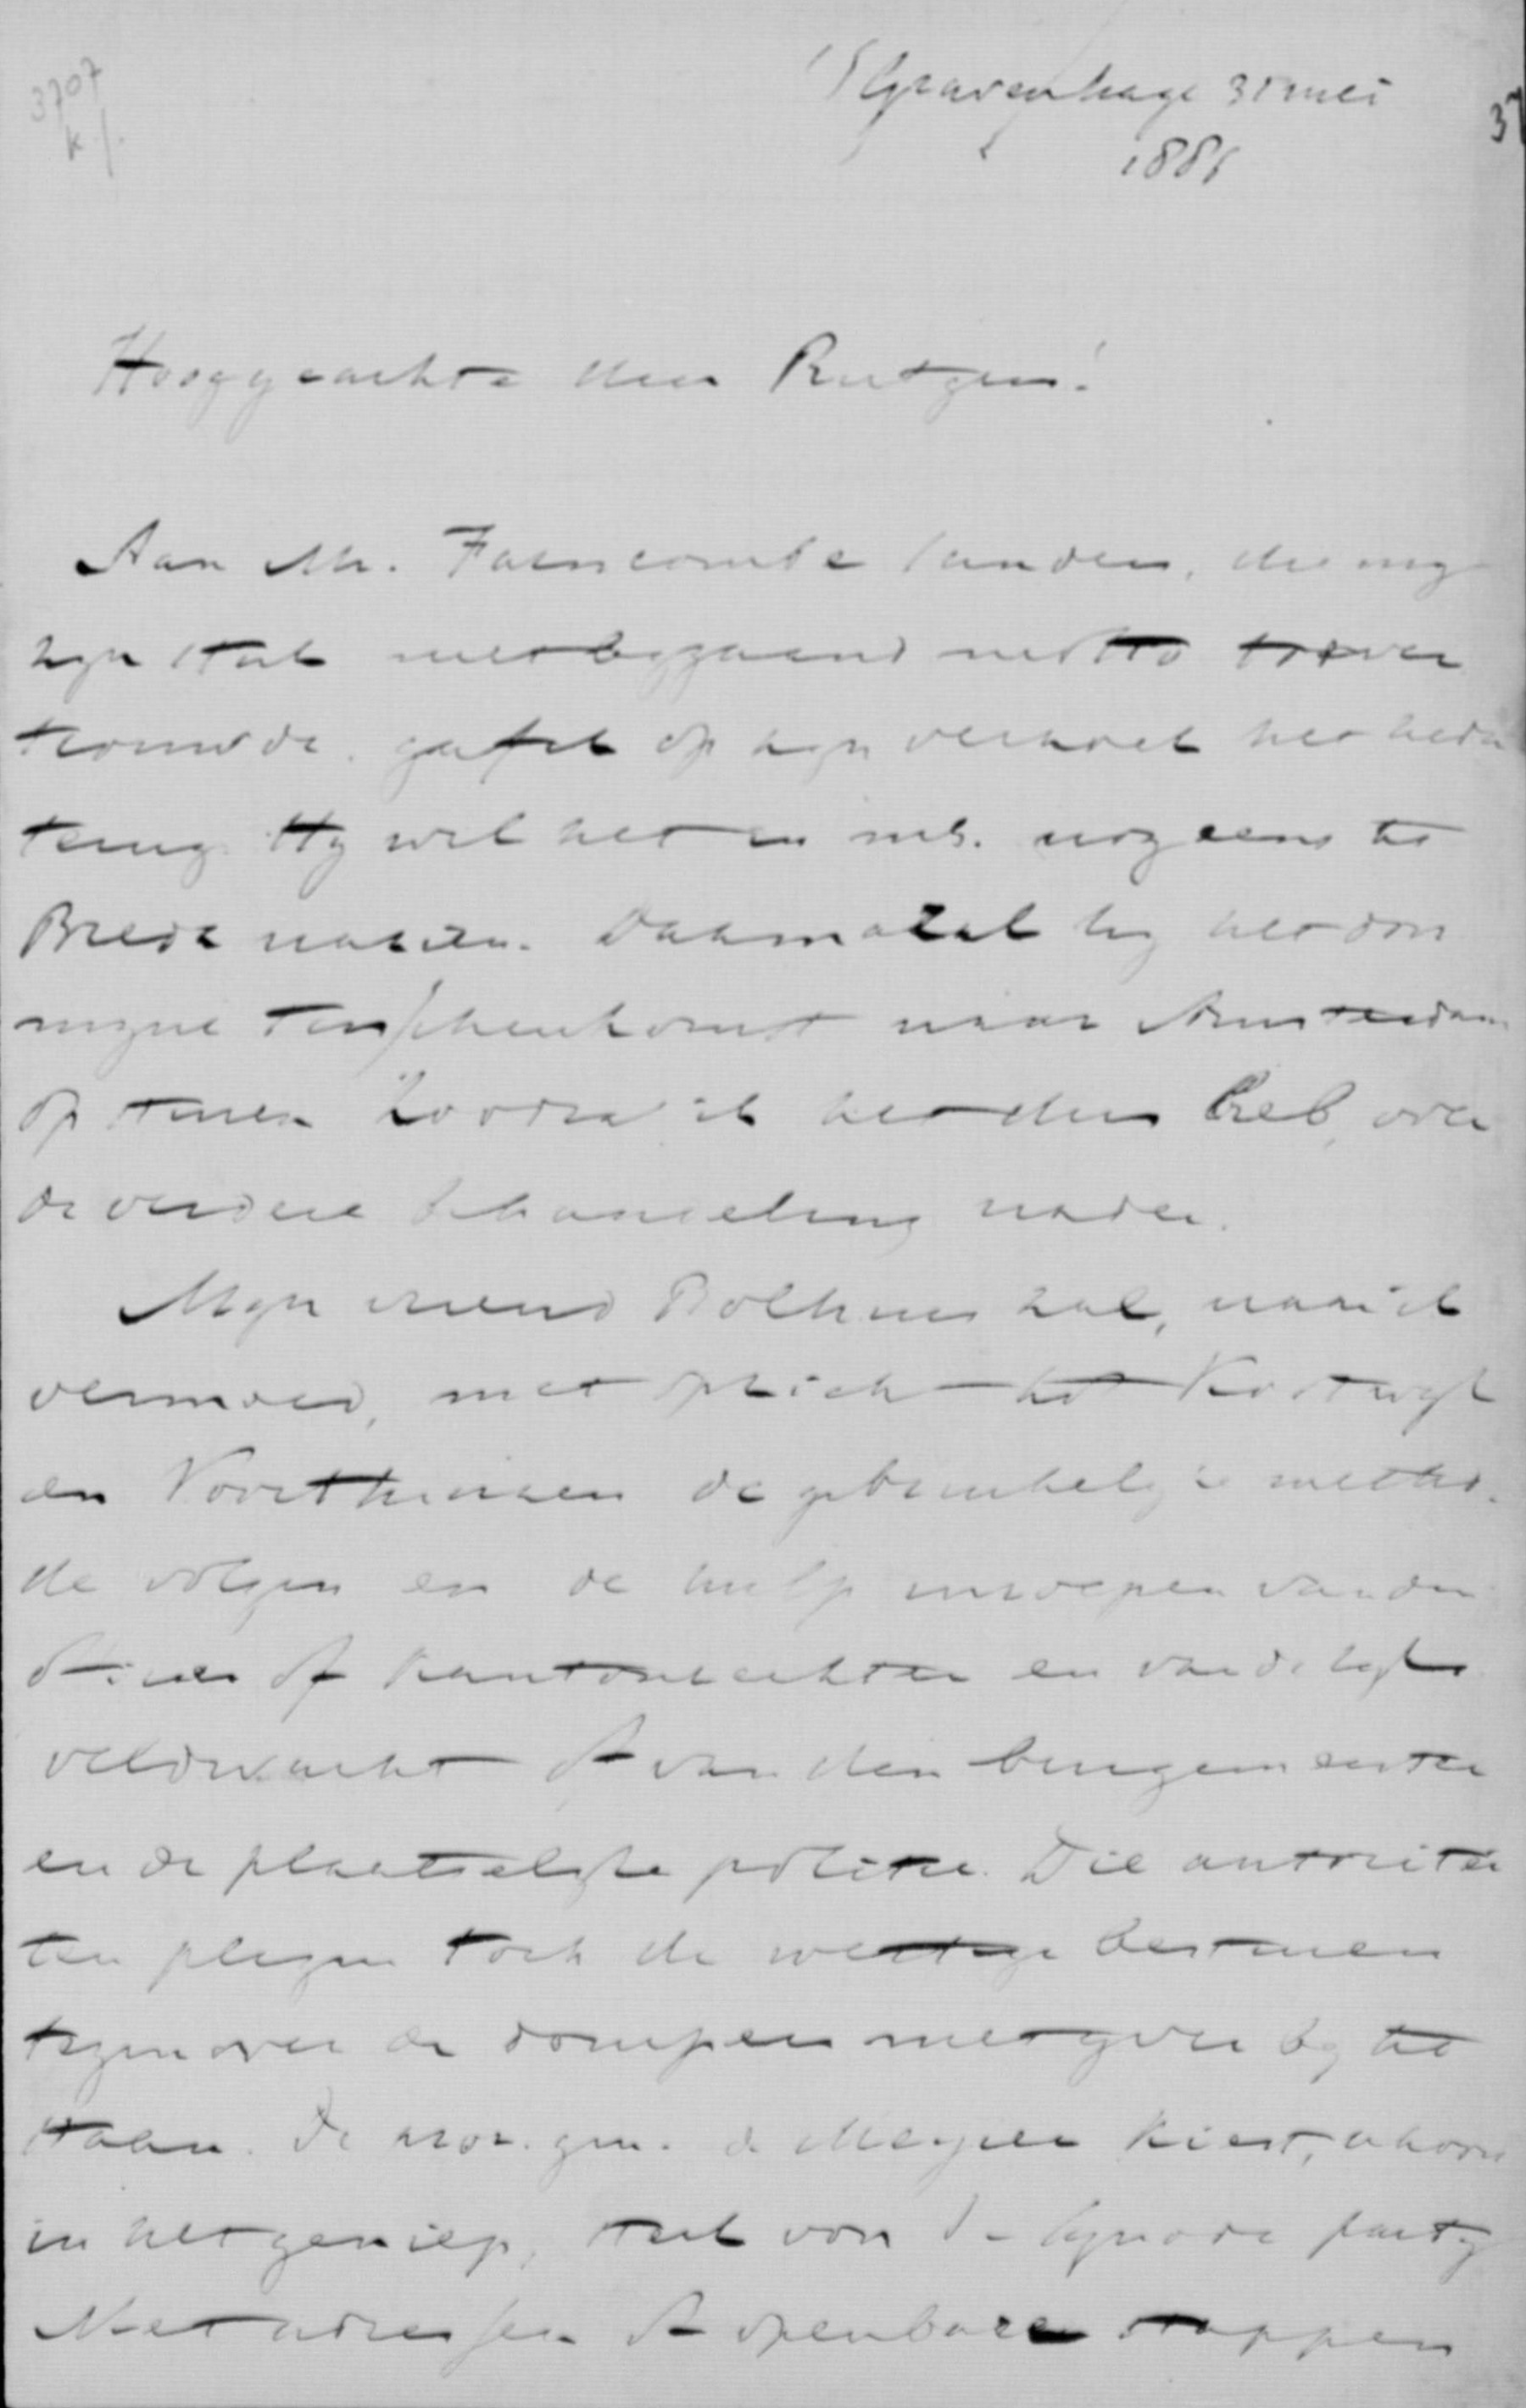 3707
k /.
'sGravenhage 31 mei
1886
37
Hooggeachte heer Rutgers!
Aan Mr. Farncombe Sanders, die mij
zijn stuk met bijgaand motto toever
trouwde, gaf ik op zijn verzoek het heden
terug. Hij wil het in ms. nog eens te
Breda nazien. Daarna zal hij het door
mijne tusschenkomst naar Amsterdam
opsturen. Zoodra ik het dus heb, over
de verdere behandeling nader.
Mijn vriend Bolhuis zal, naar ik
vermoed, met opzicht tot Kootwijk
en Voorthuizen de gebruikelijke metho-
de volgen en de hulp inroepen van den
of kantonrechter en van de rijks
veldwacht of van den burgemeester
en de plaatselijke politie. Die autoritei
ten plegen toch de wettige besturen
tegenover de met ijver bij te
staan. De proc. gen. de Meijier kiest, ofschoon
in het geniep, sterk voor de Synode partij
Met adressen of openbare stappen